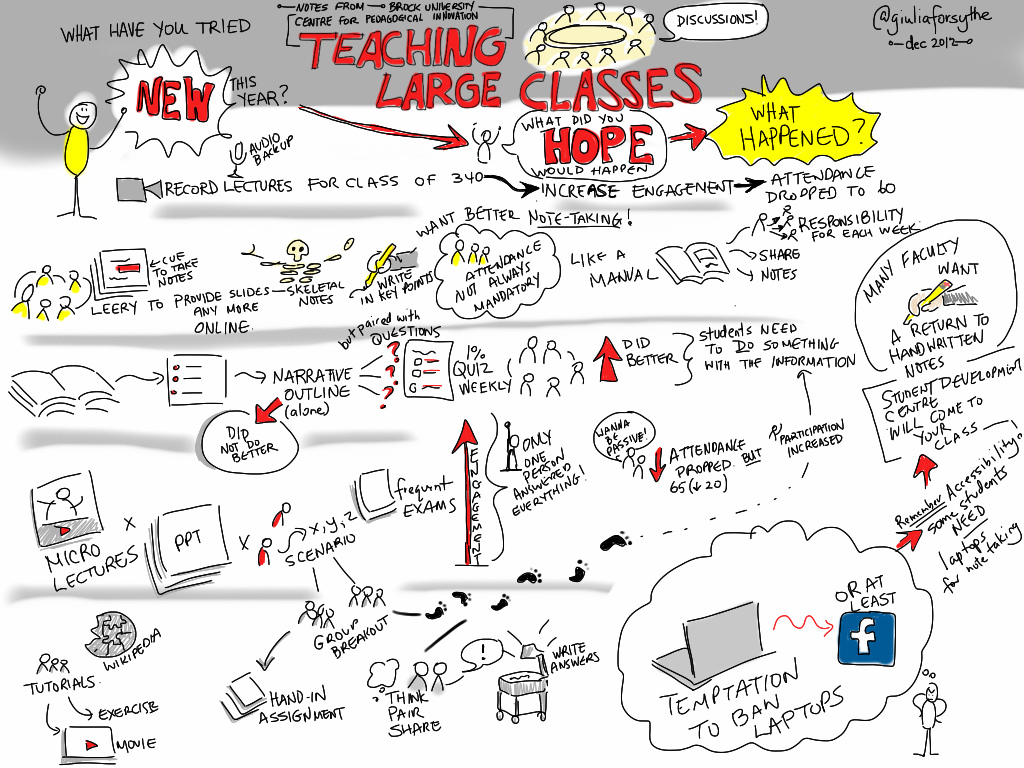 NOTES FROM BROCK UNIVERSITY
CENTRE FOR PEDAGOGICAL INNOVATION
TEACHING
LARGE CLASSES
DISCUSSIONS!
@giuliaforsythe
dec 2012
WHAT HAVE YOU TRIED
NEW
THIS
YEAR?
WHAT DID YOU
HOPE
WOULD HAPPEN
WHAT
HAPPENED?
AUDIO
BACKUP
RECORD LECTURES FOR CLASS OF 340
INCREASE ENGAGEMENT
ATTENDANCE
DROPPED TO 60
WANT BETTER NOTE-TAKING!
CUE
TO TAKE
NOTES
LEERY TO PROVIDE SLIDES
ANY MORE
ONLINE.
SKELETAL
NOTES
WRITE
IN KEY POINTS
ATTENDANCE
NOT ALWAYS
MANDATORY
LIKE A
MANUAL
RESPONSIBILITY
FOR EACH WEEK
SHARE
NOTES
MANY FACULTY
WANT
A RETURN TO
HANDWRITTEN
NOTES
NARRATIVE
OUTLINE
(alone)
but paired with
QUESTIONS
? ? ? ?
G
1%
QUIZ
WEEKLY
DID
BETTER
students NEED
TO DO SOMETHING
WITH THE INFORMATION
DID
NOT DO
BETTER
STUDENT DEVELOPMENT
CENTRE
WILL COME TO
YOUR
CLASS
MICRO
LECTURES
X
PPT
X
X, Y, Z
SCENARIO
frequent
EXAMS
ENGAGEMENT
ONLY
ONE
PERSON
ANSWERED
EVERYTHING!
WANNA
BE
PASSIVE!
ATTENDANCE
DROPPED. BUT
65 (↓20)
PARTICIPATION
INCREASED
Remember Accessibility!
some students
NEED
laptops
for note taking
WIKIPEDIA
TUTORIALS.
EXERCISE
MOVIE
GROUP
BREAKOUT
HAND-IN
ASSIGNMENT
THINK
PAIR
SHARE
!
WRITE
ANSWERS
OR AT
LEAST
f
TEMPTATION
TO BAN
LAPTOPS